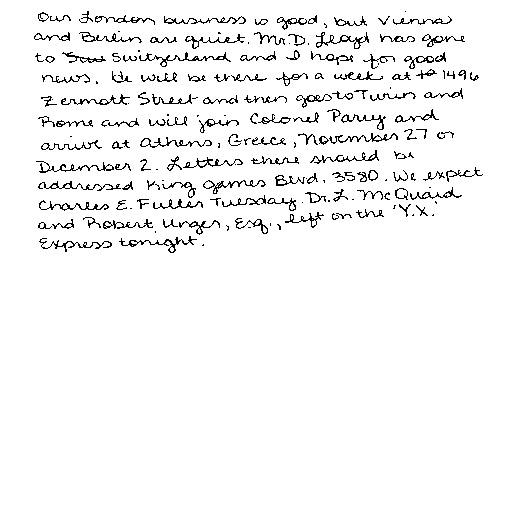 Our London business is good, but Vienna
and Berlin are quiet. Mr. D. Lloyd has gone
to Switzerland and I hope for good
news. He will be there for a week at 1496
Zermott Street and then goes to Turin and
Rome and will join Colonel Parry and
arrive at Athens, Greece, November 27 or
December 2. Letters there should be
addressed King James Blvd. 3580. We expect
Charles E. Fuller Tuesday. Dr. L. McQuaid
and Robert Unger, Esq., left on the 'Y.X.'
Express tonight.